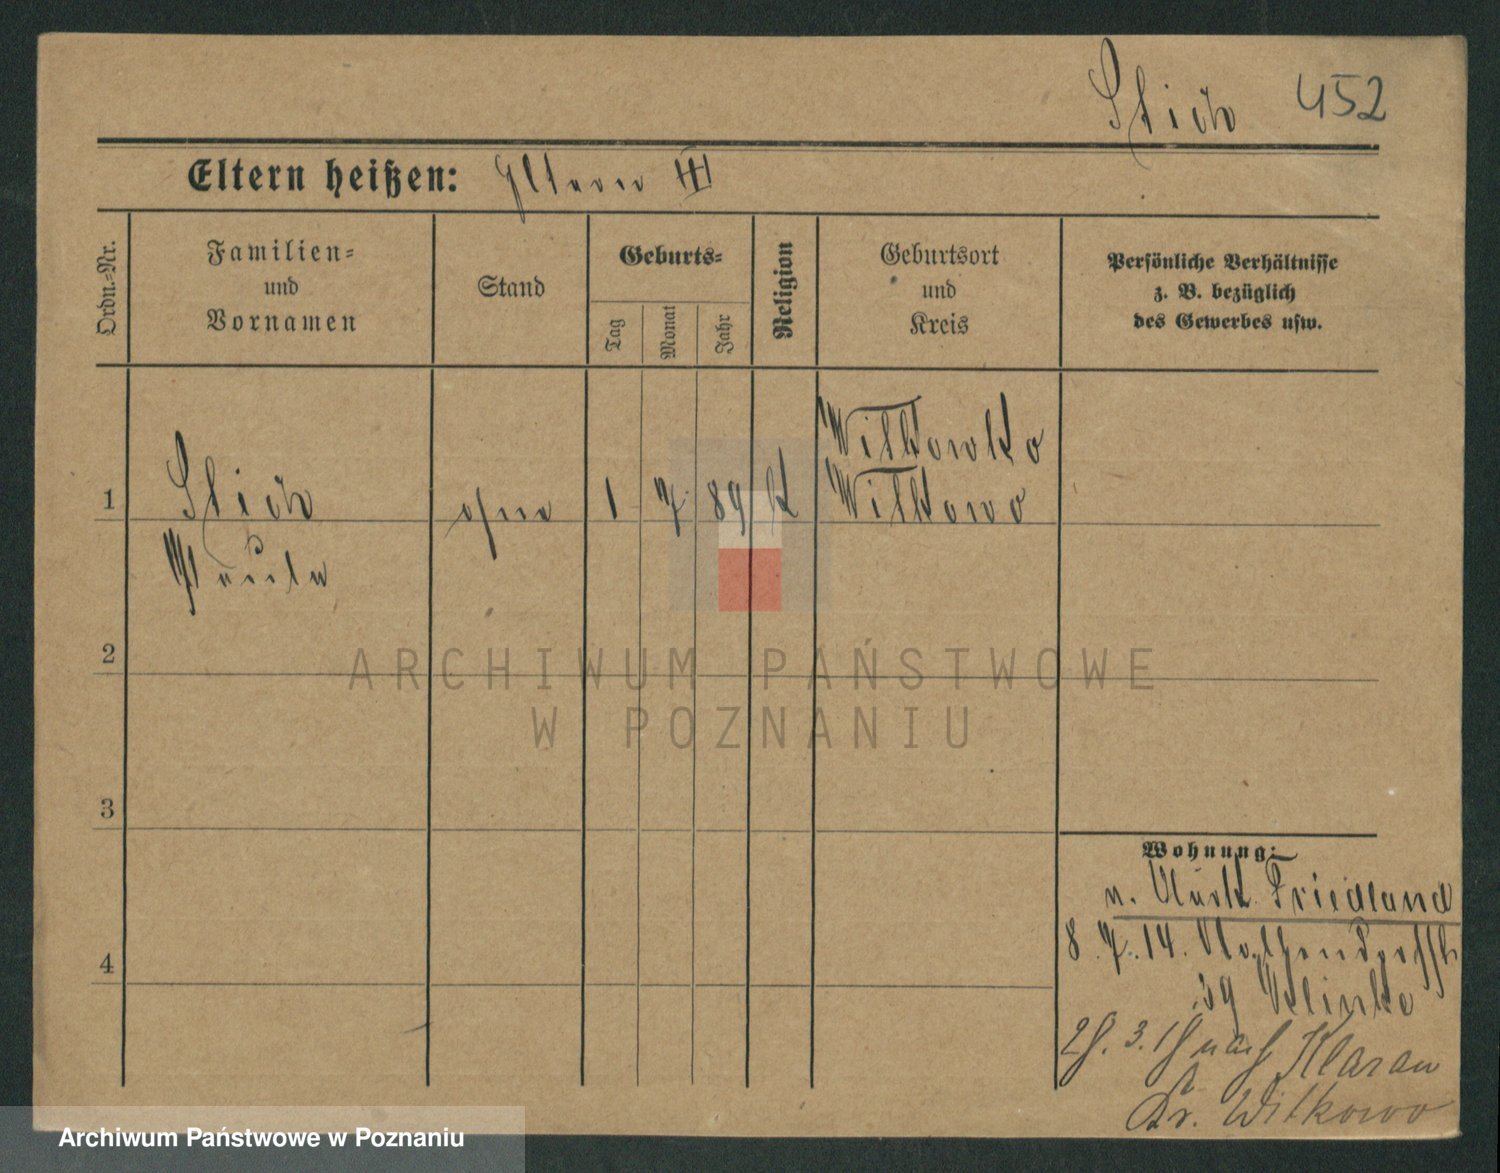 Stich 452
Eltern heißen: Eltern III
Ordn.-Nr.
Familien-
und
Vornamen
Stand
Geburts-
Tag
Monat
Jahr
Religion
Geburtsort
und
Kreis
Persönliche Verhältnisse
z. B. bezüglich
des Gewerbes usw.
Witkowko
1 Stich ohne 1 7. 89 k Witkowo
Paula
2
ARCHIWUM PAŃSTWOWE
W POZNANIU
3
4
Wohnung:
n. Friedland
8. 7. 14.
39
28. 3. 18 nach
Kr. Witkowo
Archiwum Państwowe w Poznaniu